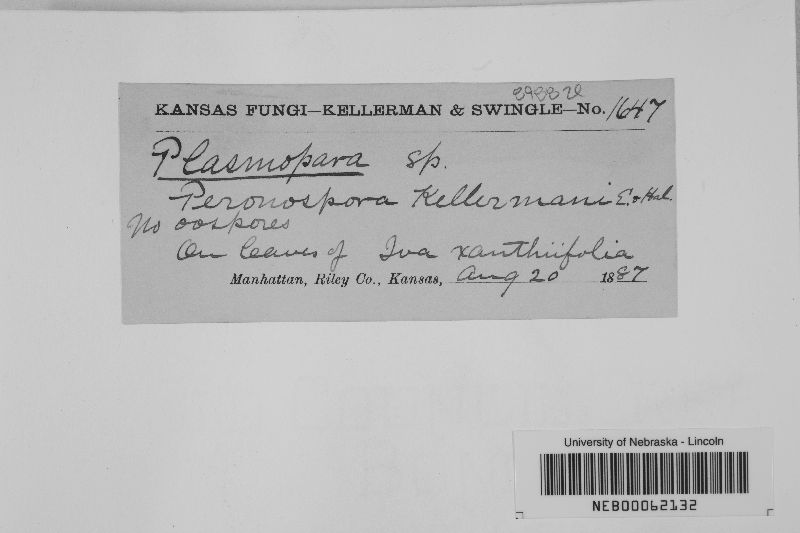 KANSAS FUNGI—KELLERMAN & SWINGLE—No. 1647
Plasmopara sp.
Peronospora Kellermani E. & Hal.
No oospores
On leaves of Iva xanthiifolia
Manhattan, Riley Co., Kansas, Aug 20 1887
University of Nebraska - Lincoln
NEB00062132